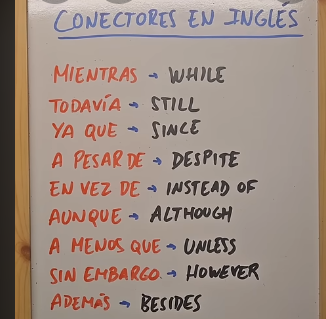 CONECTORES EN INGLÉS
MIENTRAS → WHILE
TODAVÍA → STILL
YA QUE → SINCE
A PESAR DE → DESPITE
EN VEZ DE → INSTEAD OF
AUNQUE → ALTHOUGH
A MENOS QUE → UNLESS
SIN EMBARGO → HOWEVER
ADEMÁS → BESIDES